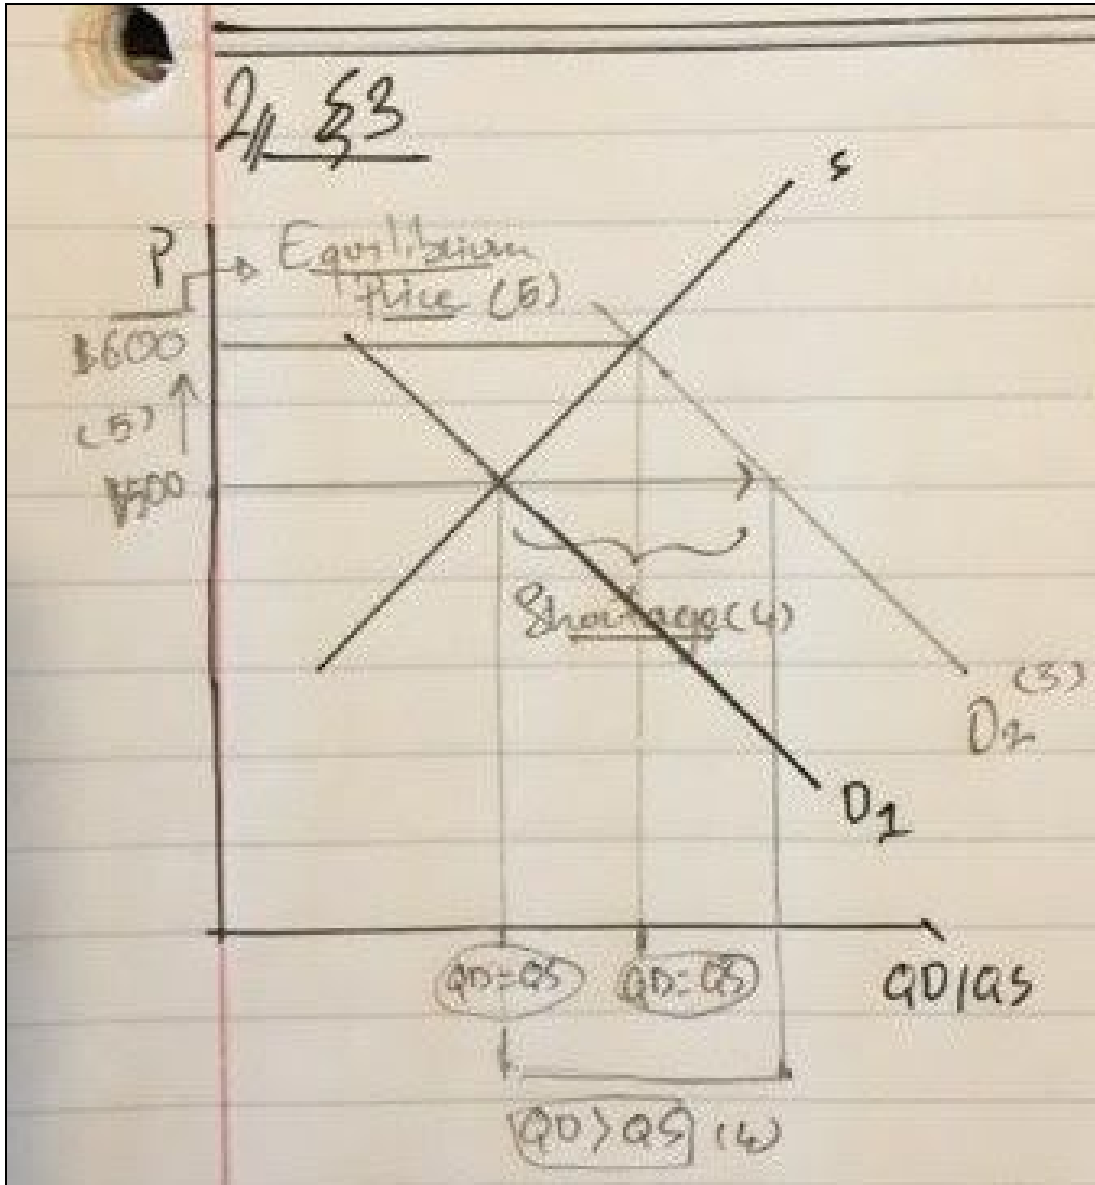 2,, §3
S
P
→ Equilibrium
Price (5)
$600
(5) ↑
$500
Shortage (4)
(3)
D2
D1
QD=QS QD=QS QD/QS
QD>QS (4)